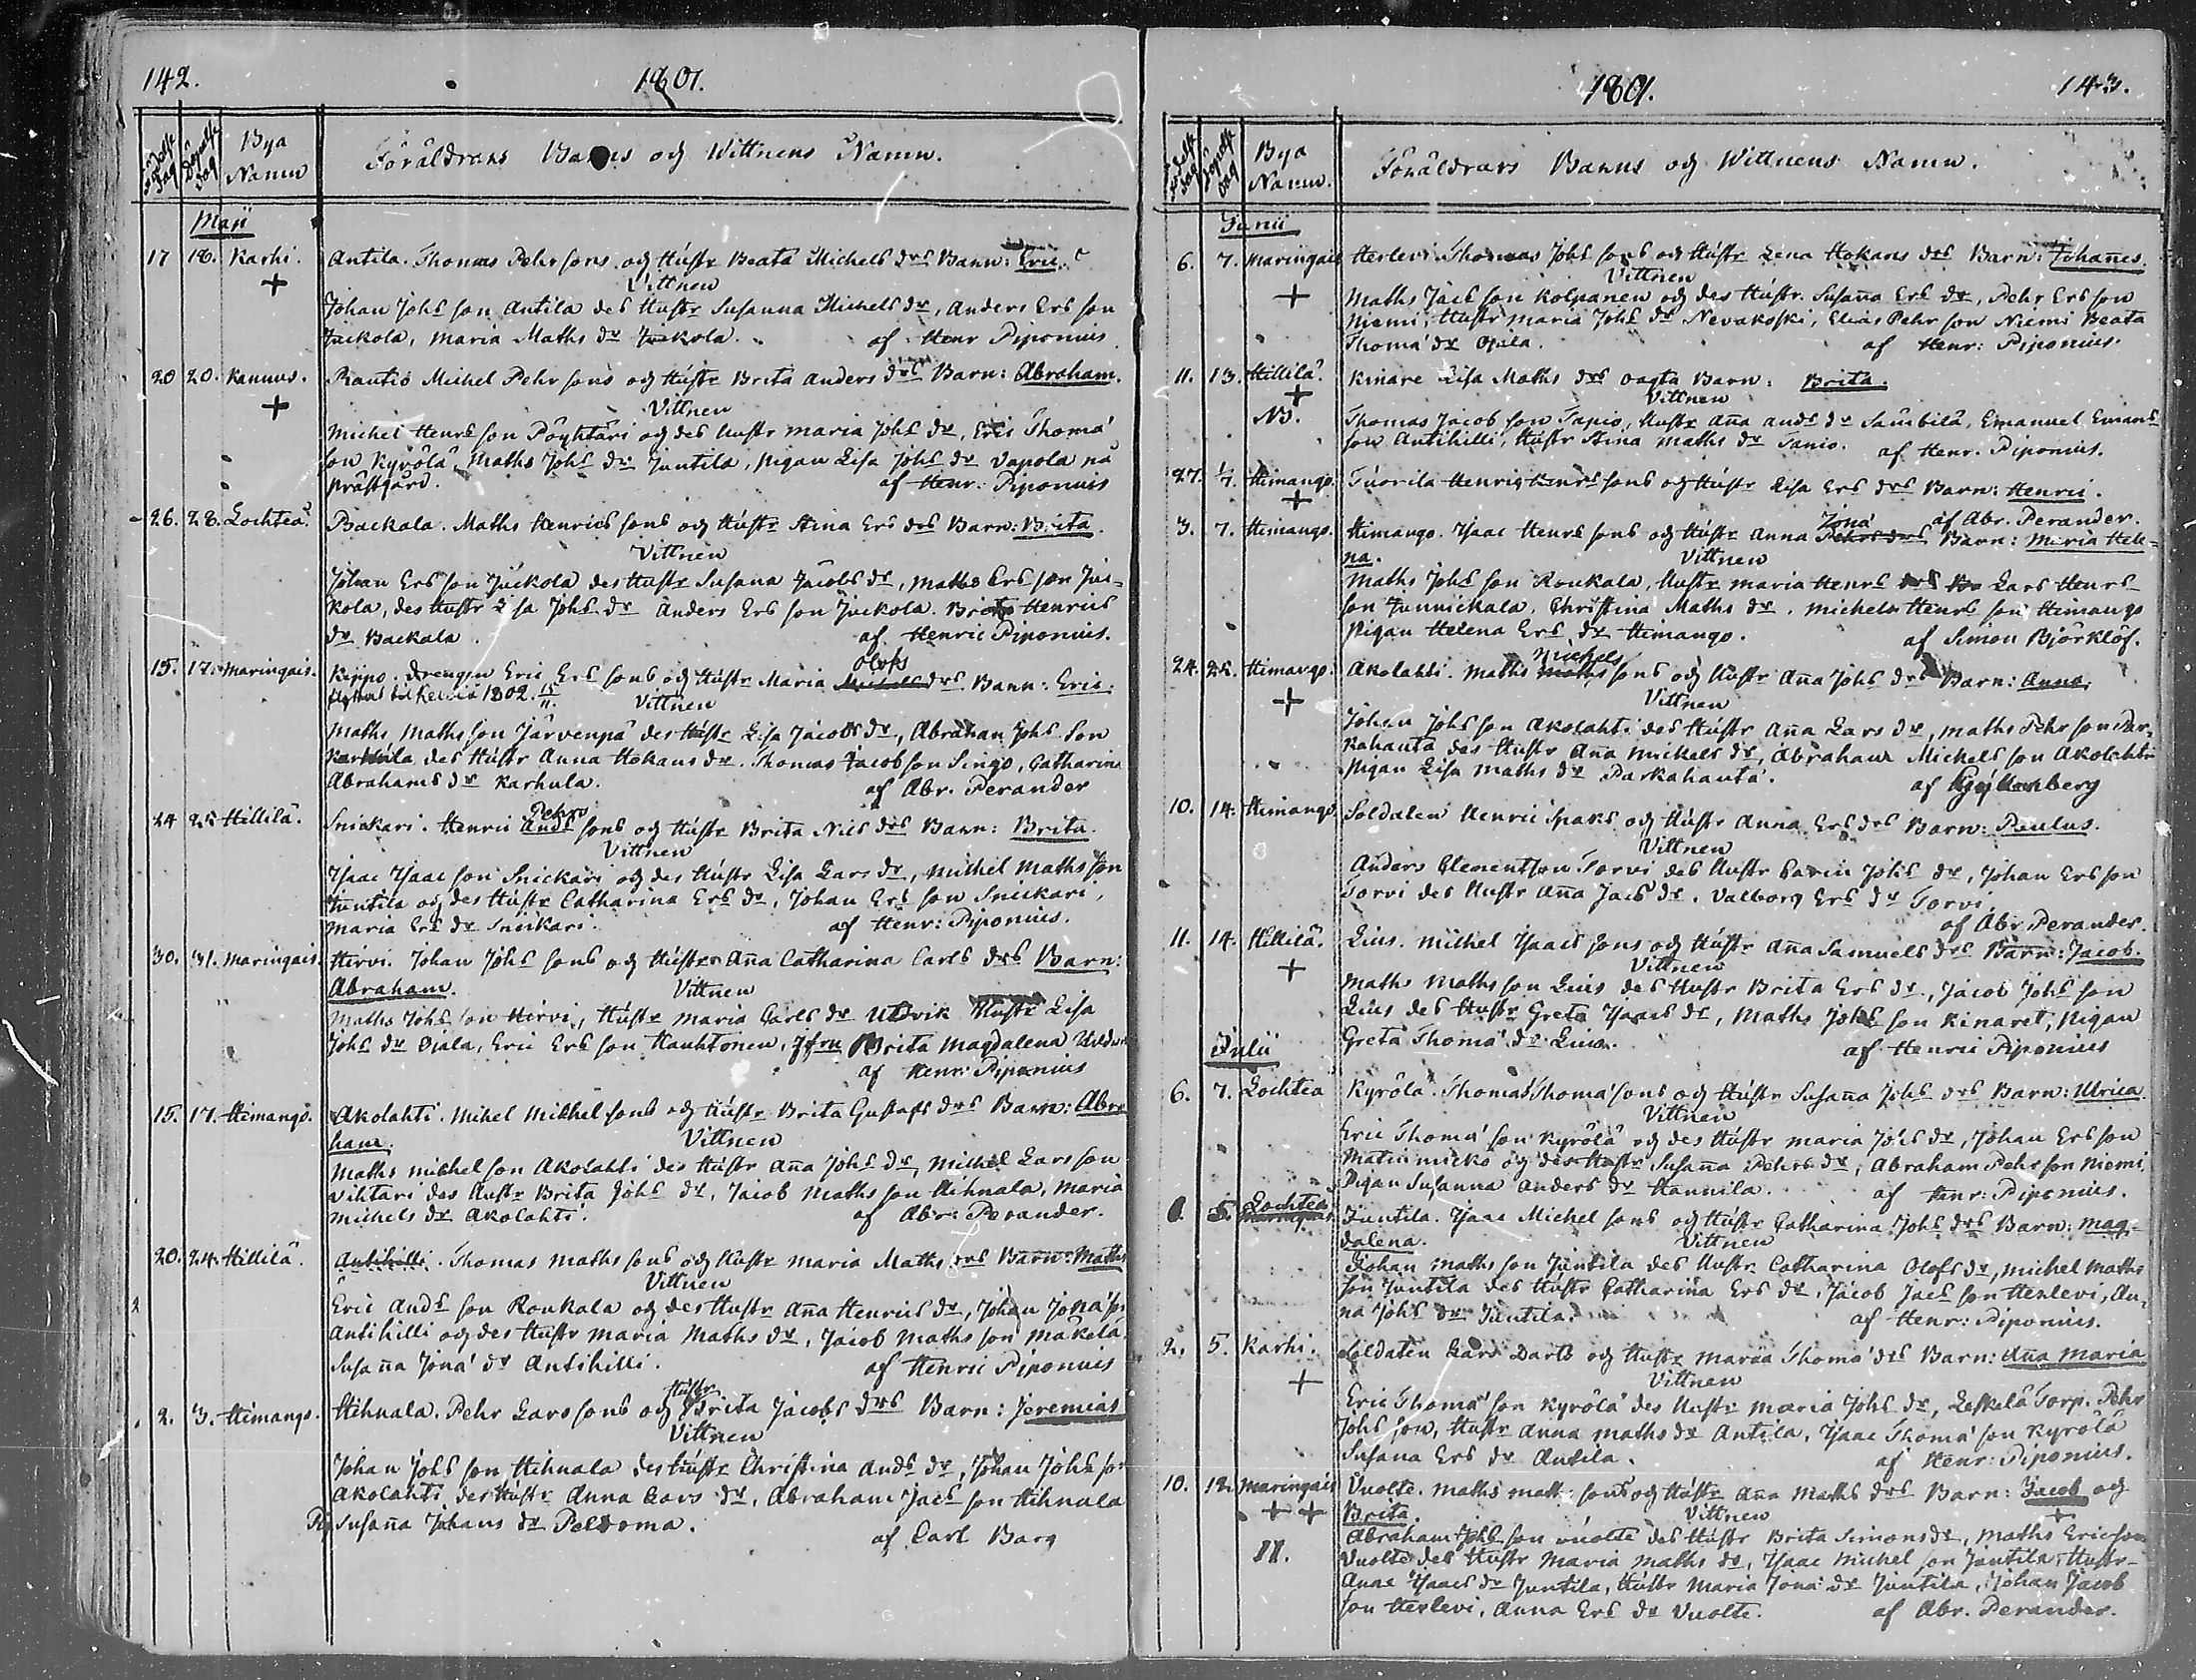 142.
1801.
Födelse Dag
Döpelse Dag
Bya Namn
Föräldrars Barns og Wittnens Namn.
Maji
17 18. Karhi. Antila. Thomas Pehrsons og Hustr Beata Michels drs Barn: Eric.
+ Vittnen
Johan Johs son Antila des Hustr Susanna Michels dr, Anders Ers son
Juckola, Maria Maths dr Juckola. af Henr Piponius
20 20. Kannus. Rautio Michel Pehr sons og Hustr Brita Anders drs Barn: Abraham.
+ Vittnen
Michel Henrs son Pöyhtäri og des Hustr Maria Johs dr, Eric Thomæ
son Kyrölä, Maths Johs dr Juntila, Pigan Lisa Johs dr Vapola på
Prästgård. af Henr. Piponius
26. 28. Lochteå. Backala. Maths Henrics sons og Hustr Stina Ers drs Barn: Brita.
Vittnen
Johan Ers son Juckola des Hustr Susana Jacobs dr, Maths Ers son Juc-
kola, des Hustr Lisa Johs dr Anders Ers son Juckola. Brita Henrics
dr Backala. af Henric Piponius.
Olofs
15. 17. Maringais. Keppo. Drengen Eric Ers sons og Hustr Maria drs Barn: Eric.
1802. 15/11. Vittnen
Maths Maths son Järvenpä des Hustr Lisa Jacobs dr, Abraham Johs son
Karhula, des Hustr Anna Hokans dr. Thomas Jacob son Singo, Catharina
Abrahams dr Karhula. af Abr. Perander
Pehrs
24 25 Hillilä. Snickari. Henric Ands sons og Hustr Brita Nils drs Barn: Brita.
Vittnen
Isaac Isaac son Snickari og des Hustr Lisa Lars dr, Michel Maths son
Juntila og des Hustr Catharina Ers dr, Johan Ers son Snickari,
Maria Ers dr Snickari. af Henr: Piponius.
30. 31. Maringais. Hirvi. Johan Johs sons og Hustr Aña Catharina Carls drs Barn:
Abraham. Vittnen
Maths Johs son Hirvi, Hustr Maria Carls dr Utvik Hustr Lisa
Johs dr Ojala, Eric Ers son Hauhtonen, Jfru Brita Magdalena
af Henr: Piponius
15. 17. Himango. Akolahti. Mickel Michel sons og Hustr Brita Gustafs drs Barn: Abra
ham. Vittnen
Maths Michel son Akolahti des Hustr Aña Johs dr, Michel Lars son
Vihtari des Hustr Brita Johs dr, Jacob Maths son Hihnala, Maria
Michels dr Akolahti. af Abr: Perander.
20. 24. Hillilä. Antihilli. Thomas Maths sons og Hustr Maria Maths drs Barn: Maths
Vittnen
Eric Ands son Roukala og des Hustr Aña Henrics dr, Johan Jonæ son
Antihilli og des Hustr Maria Maths dr, Jacob Maths son Mäkelä
Susaña Jonæ dr Antihilli. af Henric Piponius
Hustr
2. 3. Himango. Hihnala. Pehr Lars sons og Brita Jacobs drs Barn: Jeremias
Vittnen
Johan Johs son Hihnala des Hustr Christina Ands dr, Johan Johs son
Akolahti des Hustr Anna Lars dr, Abraham Jacs son Hihnala
Pig Susaña Johans dr Peldoma. af Carl Barg
1801.
143.
Födelse Dag
Döpelse Dag
Bya Namn.
Föräldrars Barns og Wittnens Namn.
Junii
6. 7. Maringais Herlevi. Thomas Johs sons og Hustr Lena Hokans drs Barn: Johañes.
Vittnen
+ Maths Jacs son Kolpanen og des Hustr. Susaña Ers dr, Pehr Ers son
Niemi, Hustr Maria Johs dr Nevakoski, Elias Pehr son Niemi Beata
Thomæ dr Ojala. af Henr: Piponius.
11. 13. Hillilä. Kinare Lisa Maths drs oagta Barn: Brita.
+ Vittnen
NB. Thomas Jacob son Tapio, Hustr Aña Ands dr Saukilä, Emanuel Emans
son Antihilli, Hustr Stina Maths dr Sanio. af Henr. Piponius.
27. 1/7. Himango. Tuorila Henric Henrs sons og Hustr Lisa Ers drs Barn: Henric.
+ af Abr. Perander.
Jonæ
3. 7. Himango. Himango. Isaac Henrs sons og Hustr Anna Pehrs drs Barn: Maria Hele-
na. Vittnen
Maths Johs son Roukala, Hustr Maria Henrs Lars Henrs
son Junnickala, Christina Maths dr. Michel Henrs son Himango
Pigan Helena Ers dr Himango. af Simon Björklöf.
Michels
24. 25. Himango. Akolahti. Maths Maths sons og Hustr Aña Johs drs Barn: Anna.
+ Vittnen
Johan Johs son Akolahti des Hustr Aña Lars dr, Maths Pehr son Par-
kahauta des Hustr Aña Mickels dr, Abraham Michels son Akolahti
Pigan Lisa Maths dr Parkahauta. af
10. 14. Himango. Soldaten Henric Spaks og Hustr Anna Ers drs Barn: Paulus.
Vittnen
Anders Clementson Torvi des Hustr Carin Johs dr, Johan Ers son
Torvi des Hustr Aña Jacs dr. Valborg Ers dr Torvi.
af Abr. Perander.
11. 14. Hillilä. Lius. Michel Isaacs sons og Hustr Aña Samuels drs Barn: Jacob.
+ Vittnen
Maths Maths son Lius des Hustr Brita Ers dr, Jacob Johs son
Lius des Hustr Greta Isaacs dr, Maths Johs son Kinaret, Pigan
Greta Thomæ dr Lius. af Henric Piponius
Julii
6. 7. Lochtea Kyrölä. Thomas Thomæ sons og Hustr Susaña Johs drs Barn: Ulrica.
Vittnen
Eric Thomæ son Kyrölä og des Hustr Maria Johs dr, Johan Ers son
Matinmicko og des Hustr Susaña Pehrs dr, Abraham Pehr son Niemi,
Pigan Susanna Anders dr Hannila. af Henr: Piponius.
5. Lochtea Juntila. Isaac Michel sons og Hustr Catharina Johs drs Barn: Mag-
dalena. Vittnen
Johan Maths son Juntila des Hustr Catharina Olofs dr, Michel Maths
son Juntila des Hustr Catharina Ers dr, Jacob Jacs son Herlevi, An-
na Johs dr Juntila. af Henr: Piponius.
2. 5. Karhi. Soldaten Lars Darts og Hustr Maria Thomæ drs Barn: Aña Maria
+ Vittnen
Eric Thomæ son Kyrölä des Hustr Maria Johs dr, Leskelä Torp. Pehr
Johs son, Hustr Anna Maths dr Antila, Isaac Thomæ son Kyrölä
Susana Ers dr Antila. af Henr: Piponius.
10. 12. Maringais Vuolte. Maths Math: sons og Hustr Aña Maths drs Barn: Jacob og
+ + Brita. Vittnen +
Abraham Johs son Vuolte des Hustr Brita Simons dr, Maths Ericson
II. Vuolte des Hustr Maria Maths dr, Isaac Michel son Juntila, Hustr
Anna Isaacs dr Juntila, Hustr Maria Jonæ dr Juntila, Johan Jacob
son Herlevi, Anna Ers dr Vuolte. af Abr. Perander.